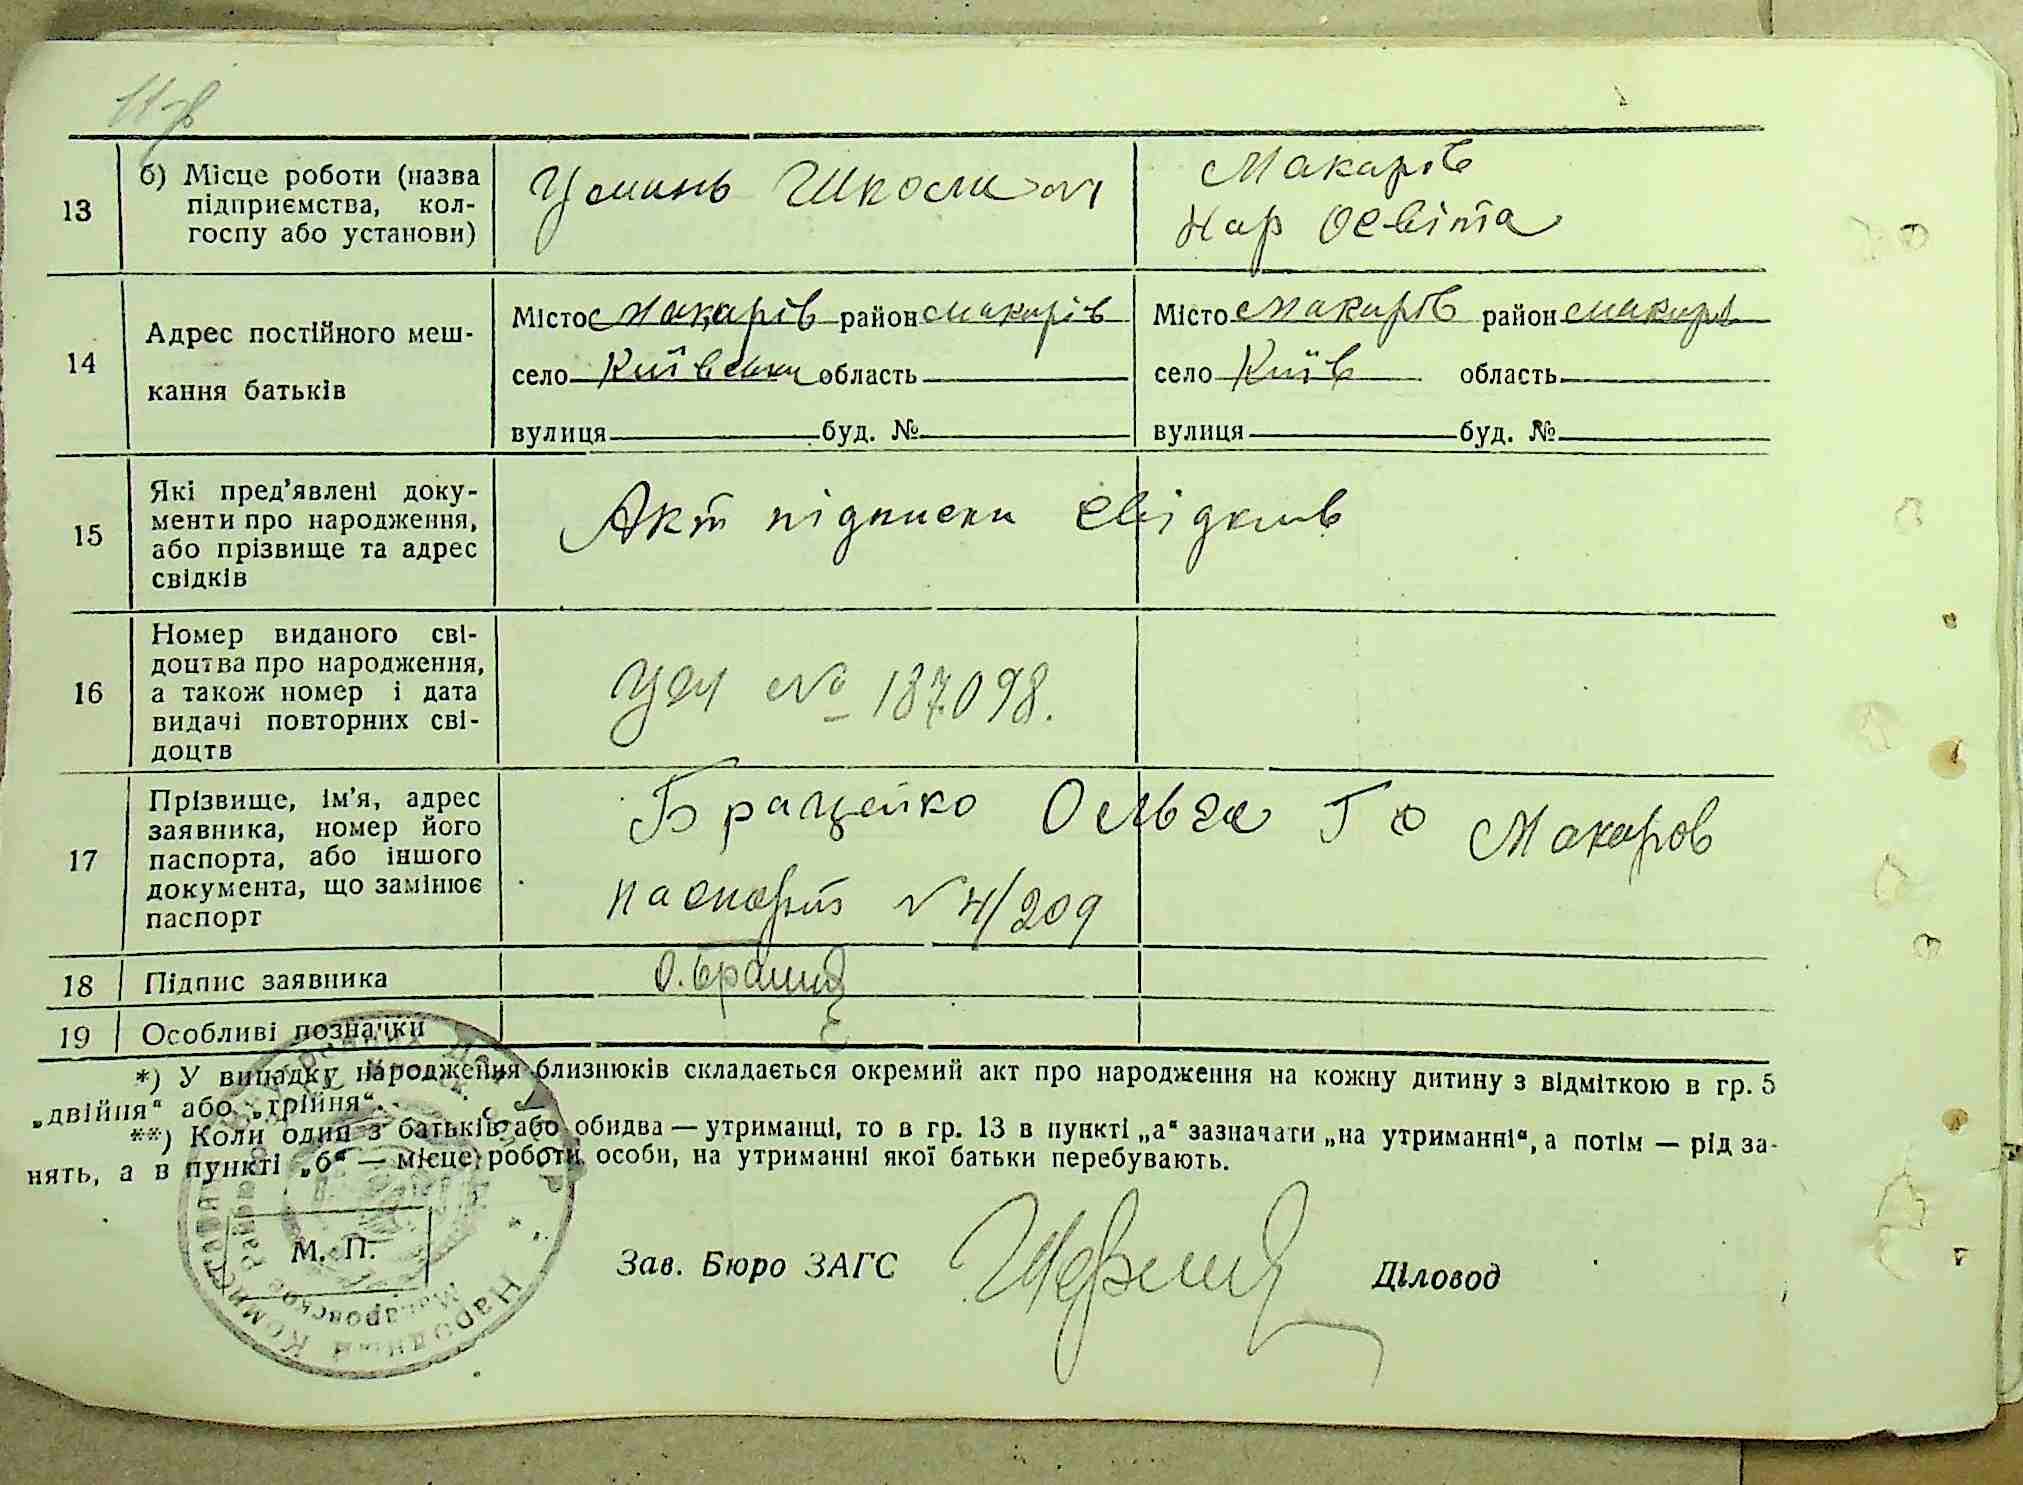 13
б) Місце роботи (назва
підприємства, кол-
госпу або установи)
Умань Школа №1
Макарів
Нар Освіта
14
Адрес постійного меш-
кання батьків
Місто Макарів район Макарів
село Київська область
вулиця буд. №
Місто Макарів район Макарів
село Київ область
вулиця буд. №
15
Які пред'явлені доку-
менти про народження,
або прізвище та адрес
свідків
Акт підписки свідків
16
Номер виданого сві-
доцтва про народження,
а також номер і дата
видачі повторних сві-
доцтв
№ 187098.
17
Прізвище, ім'я, адрес
заявника, номер його
паспорта, або іншого
документа, що замінює
паспорт
Ольга Макаров
паспорт N 4/209
18
Підпис заявника
19
Особливі позначки
*) У випадку народження близнюків складається окремий акт про народження на кожну дитину з відміткою в гр. 5
„двійня“ або „трійня“.
**) Коли один з батьків або обидва — утриманці, то в гр. 13 в пункті „а“ зазначати „на утриманні“, а потім — рід за-
нять, а в пункті „б“ — місце роботи особи, на утриманні якої батьки перебувають.
М. П.
Зав. Бюро ЗАГС
Діловод